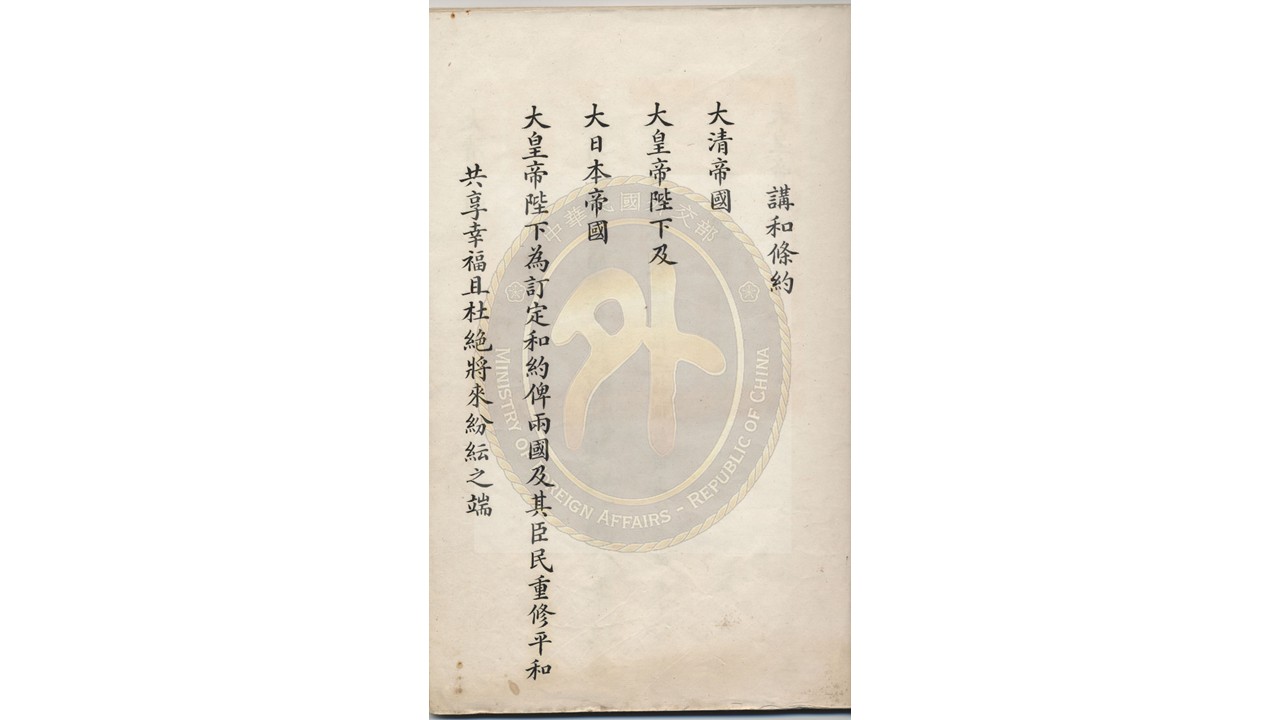 講和條約
大清帝國
大皇帝陛下及
大日本帝國
大皇帝陛下為訂定和約俾兩國及其臣民重修平和
共享幸福且杜絕將來紛紜之端
中華民國外交部
外
MINISTRY OF FOREIGN AFFAIRS - REPUBLIC OF CHINA